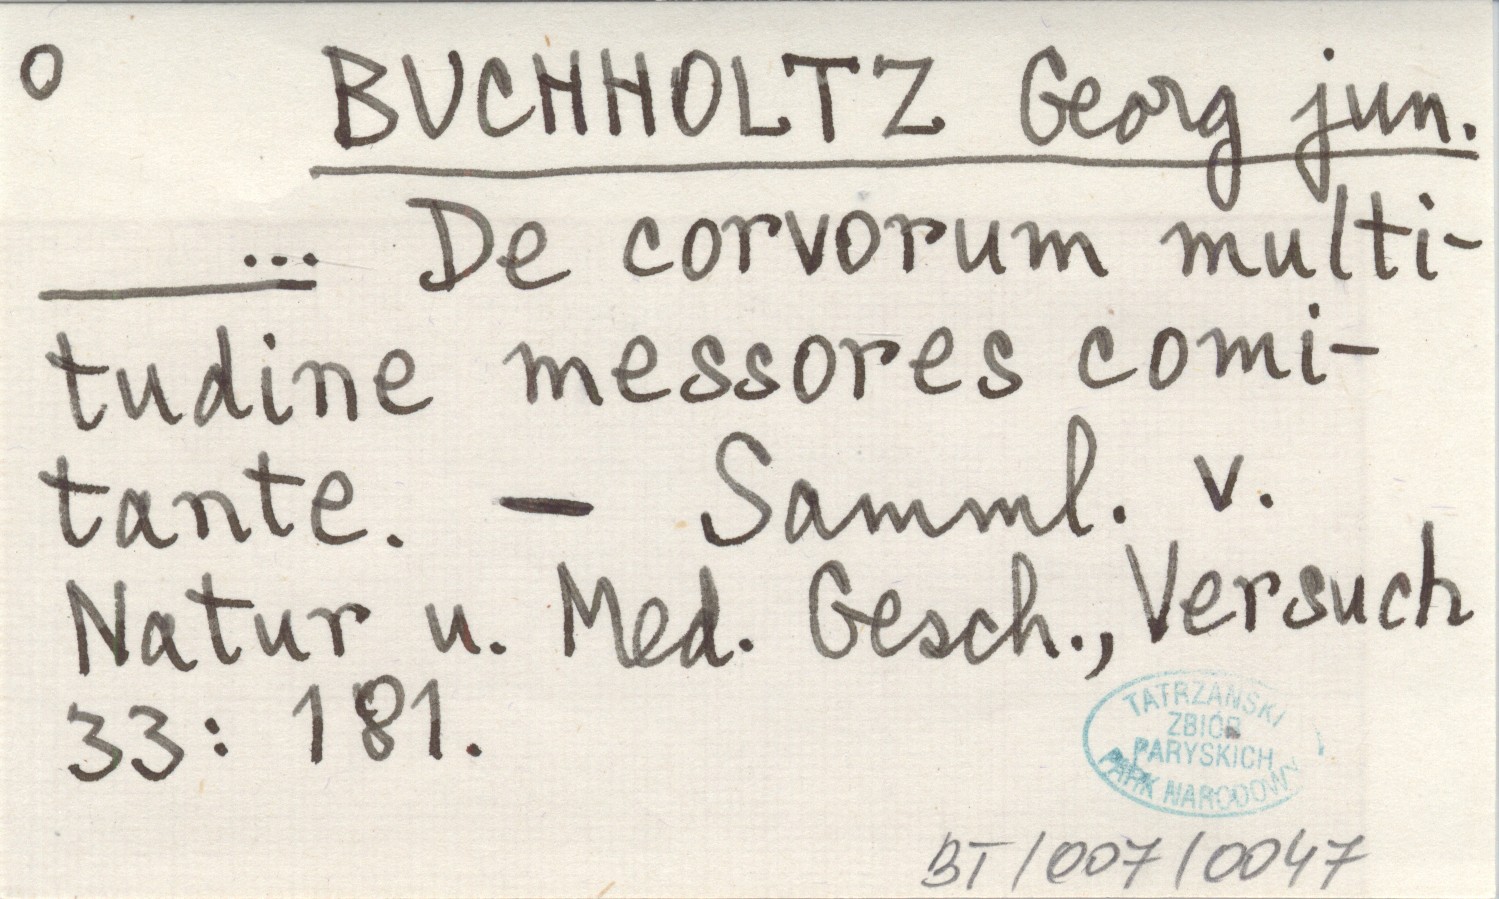 o BUCHHOLTZ Georg jun.
... De corvorum multi-
tudine messores comi-
tante. — Samml. v.
Natur u. Med. Gesch., Versuch
33: 181.
TATRZAŃSKI
ZBIÓR
PARYSKICH
PARK NARODOWY
BT/007/0047